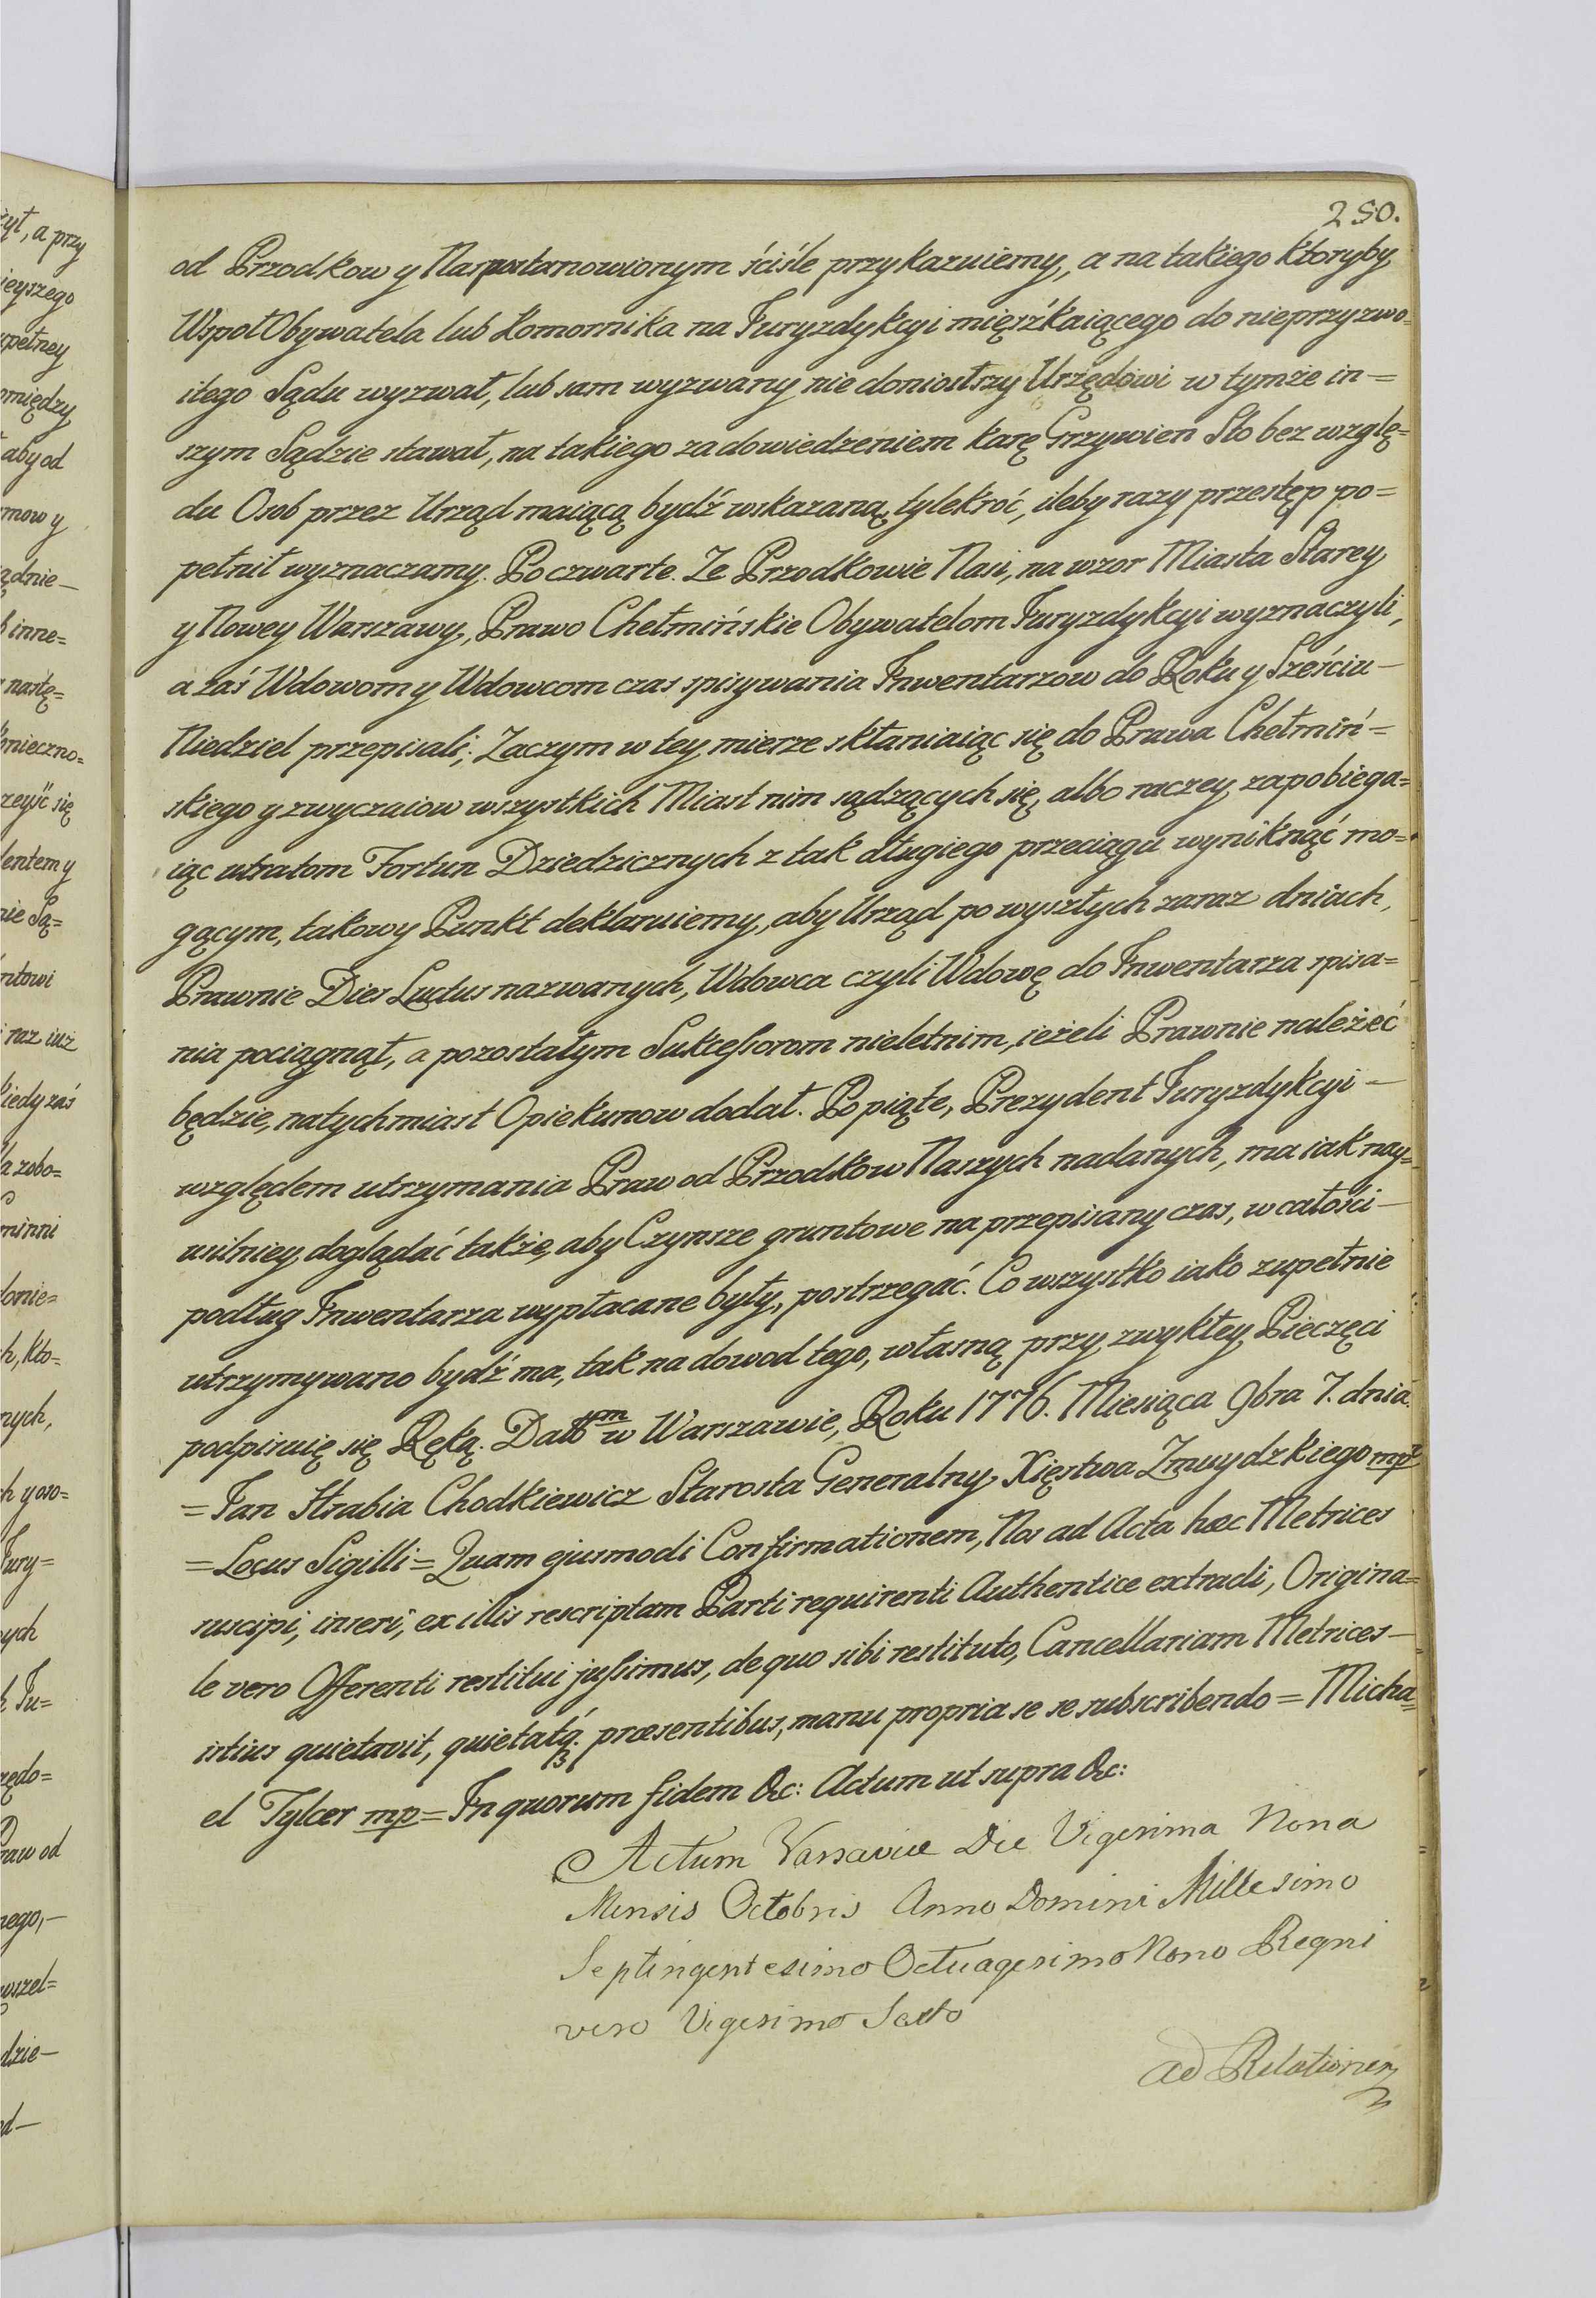 250.
od Przodkow y Nas postanowionym ściśle przykazuiemy, a na takiego ktoryby
WspołObywatela lub Komornika na Juryzdykcyi mięszkaiącego do nieprzyzwo=
itego Sądu wyzwał, lub sam wyzwany nie doniosłszy Urzędowi w tymże in=
szym Sądzie stawał, na takiego za dowiedzeniem karę Grzywien Sto bez wzglę=
du Osob przez Urząd maiącą bydź wskazaną, tylekroć, ileby razy przestęp po=
pełnił wyznaczamy. Po czwarte. Ze Przodkowie Nasi, na wzor Miasta Starey
y Nowey Warszawy, Prawo Chełmińskie Obywatelom Juryzdykcyi wyznaczyli,
a zaś Wdowom y Wdowcom czas spisywania Inwentarzow do Roku y Sześciu—
Niedziel przepisali; Zaczym w tey mierze skłaniaiąc się do Prawa Chełmiń=
skiego y zwyczaiow wszystkich Miast nim sądzących się, albo raczey zapobiega=
iąc utratom Fortun Dziedzicznych z tak długiego przeciągu wyniknąć mo=
gącym, takowy Punkt deklaruiemy, aby Urząd po wyszłych zaraz dniach,
Prawnie Dies Luctus nazwanych, Wdowca czyli Wdowę do Inwentarza spisa=
nia pociągnął, a pozostałym Sukcessorom nieletnim, ieżeli Prawnie należeć
będzie, natychmiast Opiekunow dodał. Po piąte, Prezydent Juryzdykcyi—
względem utrzymania Praw od Przodkow Naszych nadanych, ma iak nay=
usilniey doglądać także, aby Czynsze gruntowe na przepisany czas, w całości—
podług Inwentarza wypłacane były, postrzegać. Co wszystko iako zupełnie
utrzymywano bydź ma, tak na dowod tego, własną przy zwykłey Pieczęci
podpisuię się Ręką. Datt͞m w Warszawie, Roku 1776. Miesiąca 9bra 7. dnia.
=Jan Hrabia Chodkiewicz Starosta Generalny Xięstwa Zmuydzkiego mp
=Locus Sigilli=Quam ejusmodi Confirmationem, Nos ad Acta hæc Metrices
suscipi, inseri, ex illis rescriptam Parti requirenti Authentice extradi, Origina=
le vero Offerenti restitui jussimus, de quo sibi restituto, Cancellariam Metrices—
istius quietavit, quietatq. præsentibus, manu propria se se subscribendo=Micha=
el Tylcer mp=In quorum fidem &c: Actum ut supra &c:
Actum Varsaviæ Die Vigesima Nona
Mensis Octobris Anno Domini Millesimo
Septingentesimo Octuagesimo Nono Regni
vero Vigesimo Sexto
ad Relationem